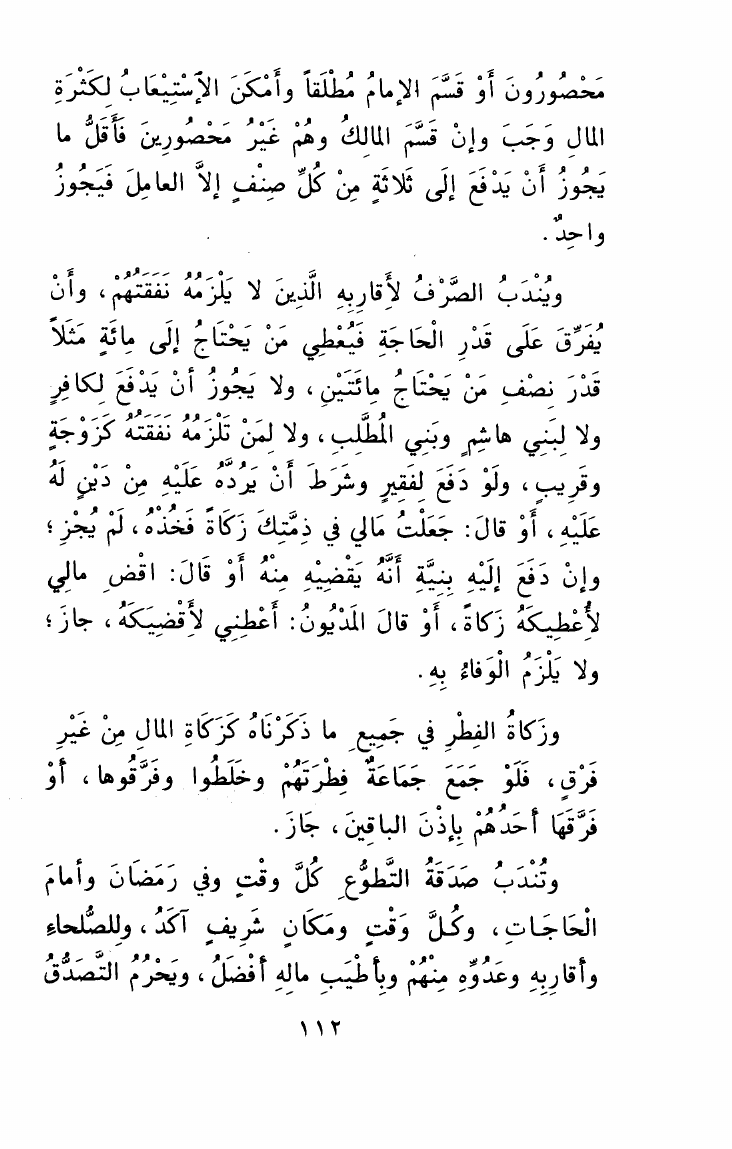 مَحْصُورُونَ أَوْ قَسَّمَ الإمامُ مُطْلَقاً وأَمْكَنَ الاسْتِيْعَابُ لِكَثْرَةِ
المالِ وَجَبَ وإنْ قَسَّمَ المالِكُ وهُمْ غَيْرُ مَحْصُورِينَ فَأَقَلُّ ما
يَجُوزُ أَنْ يَدْفَعَ إلَى ثَلاثَةٍ مِنْ كُلِّ صِنْفٍ إلاَّ العامِلَ فَيَجُوزُ
واحِدٌ.
ويُنْدَبُ الصَّرْفُ لأَقارِبِهِ الَّذِينَ لا يَلْزَمُهُ نَفَقَتُهُمْ، وأَنْ
يُفَرِّقَ عَلَى قَدْرِ الْحَاجَةِ فَيُعْطِي مَنْ يَحْتَاجُ إلَى مِائَةٍ مَثَلاً
قَدْرَ نِصْفِ مَنْ يَحْتَاجُ مِائَتَيْنِ، ولا يَجُوزُ أنْ يَدْفَعَ لِكافِرٍ
ولا لِبَنِي هاشِمٍ وبَنِي المُطَّلِبِ، ولا لِمَنْ تَلْزَمُهُ نَفَقَتُهُ كَزَوْجَةٍ
وقَرِيبٍ، ولَوْ دَفَعَ لِفَقِيرٍ وشَرَطَ أَنْ يَرُدَّهُ عَلَيْهِ مِنْ دَيْنٍ لَهُ
عَلَيْهِ، أَوْ قالَ: جَعَلْتُ مَالِي في ذِمَّتِكَ زَكاةً فَخُذْهُ، لَمْ يُجْزِ؛
وإنْ دَفَعَ إلَيْهِ بِنِيَّةِ أَنَّهُ يَقْضِيْهِ مِنْهُ أَوْ قَالَ: اقْضِ مالِي
لأُعْطِيكَهُ زَكاةً، أَوْ قالَ المَدْيُونُ: أَعْطِنِي لأَقْضِيَكَهُ، جازَ؛
ولا يَلْزَمُ الْوَفاءُ بِهِ.
وزَكاةُ الفِطْرِ في جَمِيعِ ما ذَكَرْنَاهُ كَزَكَاةِ المالِ مِنْ غَيْرِ
فَرْقٍ، فَلَوْ جَمَعَ جَمَاعَةٌ فِطْرَتَهُمْ وخَلَطُوا وفَرَّقُوها، أَوْ
فَرَّقَهَا أحَدُهُمْ بِإذْنِ الباقِينَ، جَازَ.
وتُنْدَبُ صَدَقَةُ التَّطَوُّعِ كُلَّ وقْتٍ وفي رَمَضَانَ وأمامَ
الْحَاجَاتِ، وكُلَّ وَقْتٍ ومَكَانٍ شَرِيفٍ آكَدُ، ولِلصُّلَحاءِ
وأقارِبِهِ وعَدُوِّهِ مِنْهُمْ وبِأَطْيَبِ مالِهِ أفْضَلُ، ويَحْرُمُ التَّصَدُّقُ
١١٢